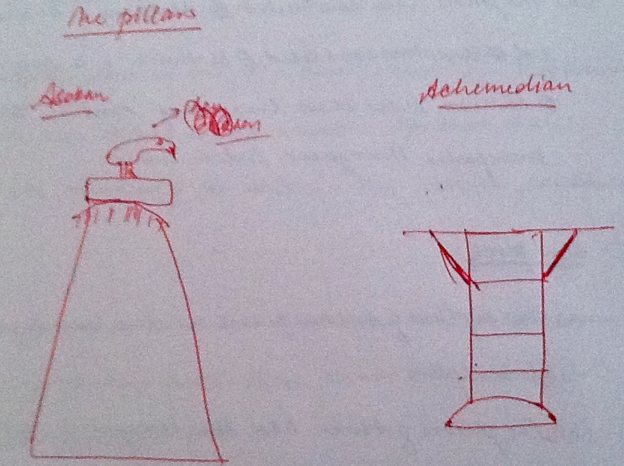 The pillars
Asokan
Achemedian